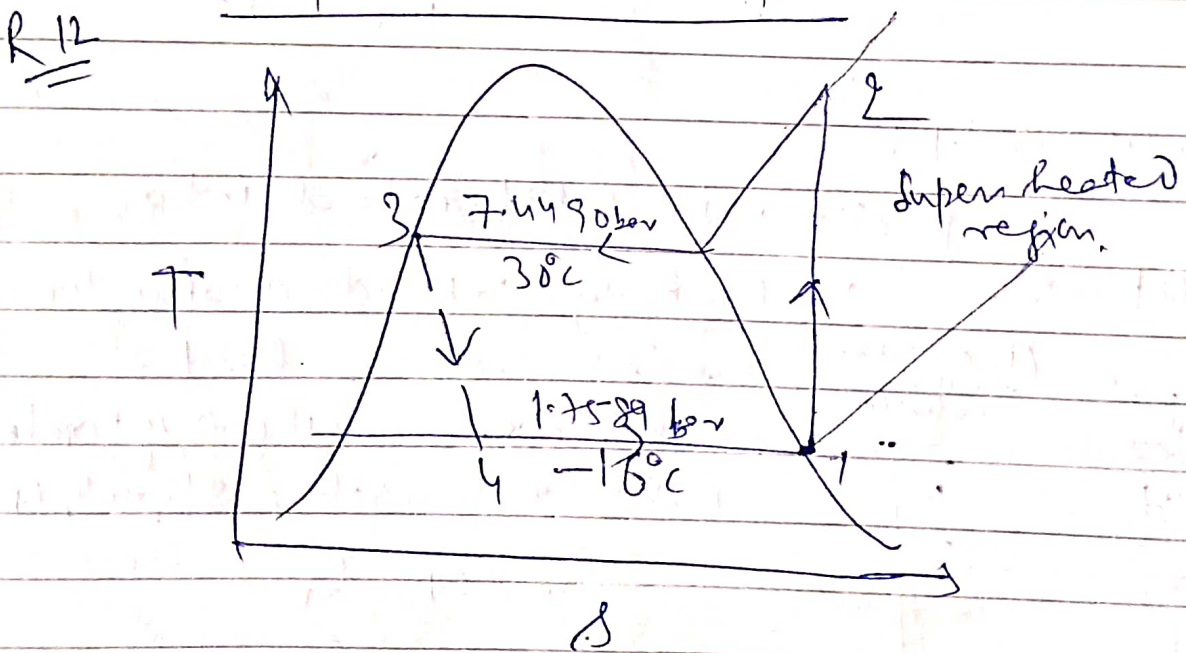 R 12
2
Superheated
region.
3
7.4490 bar
30°C
T
1.7589 bar
4
-16°C
1
S